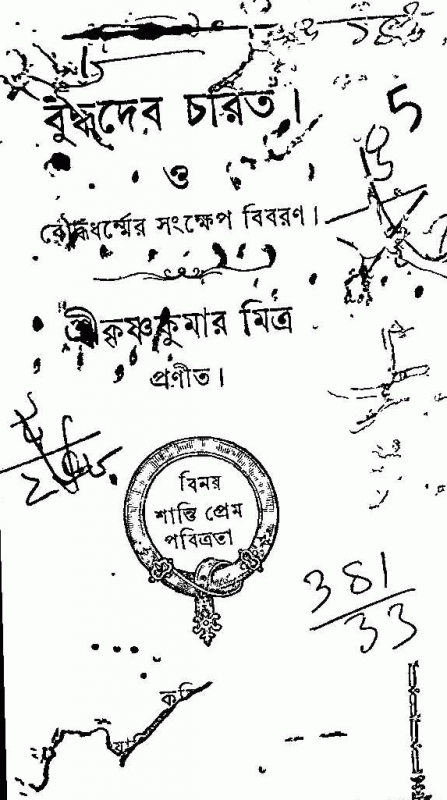 বুদ্ধদেব চরিত।
ও
বৌদ্ধধর্ম্মের সংক্ষেপ বিবরণ।
শ্রীকৃষ্ণকুমার মিত্র
প্রণীত।
বিনয়
শান্তি প্রেম
পবিত্রতা
5
381
33